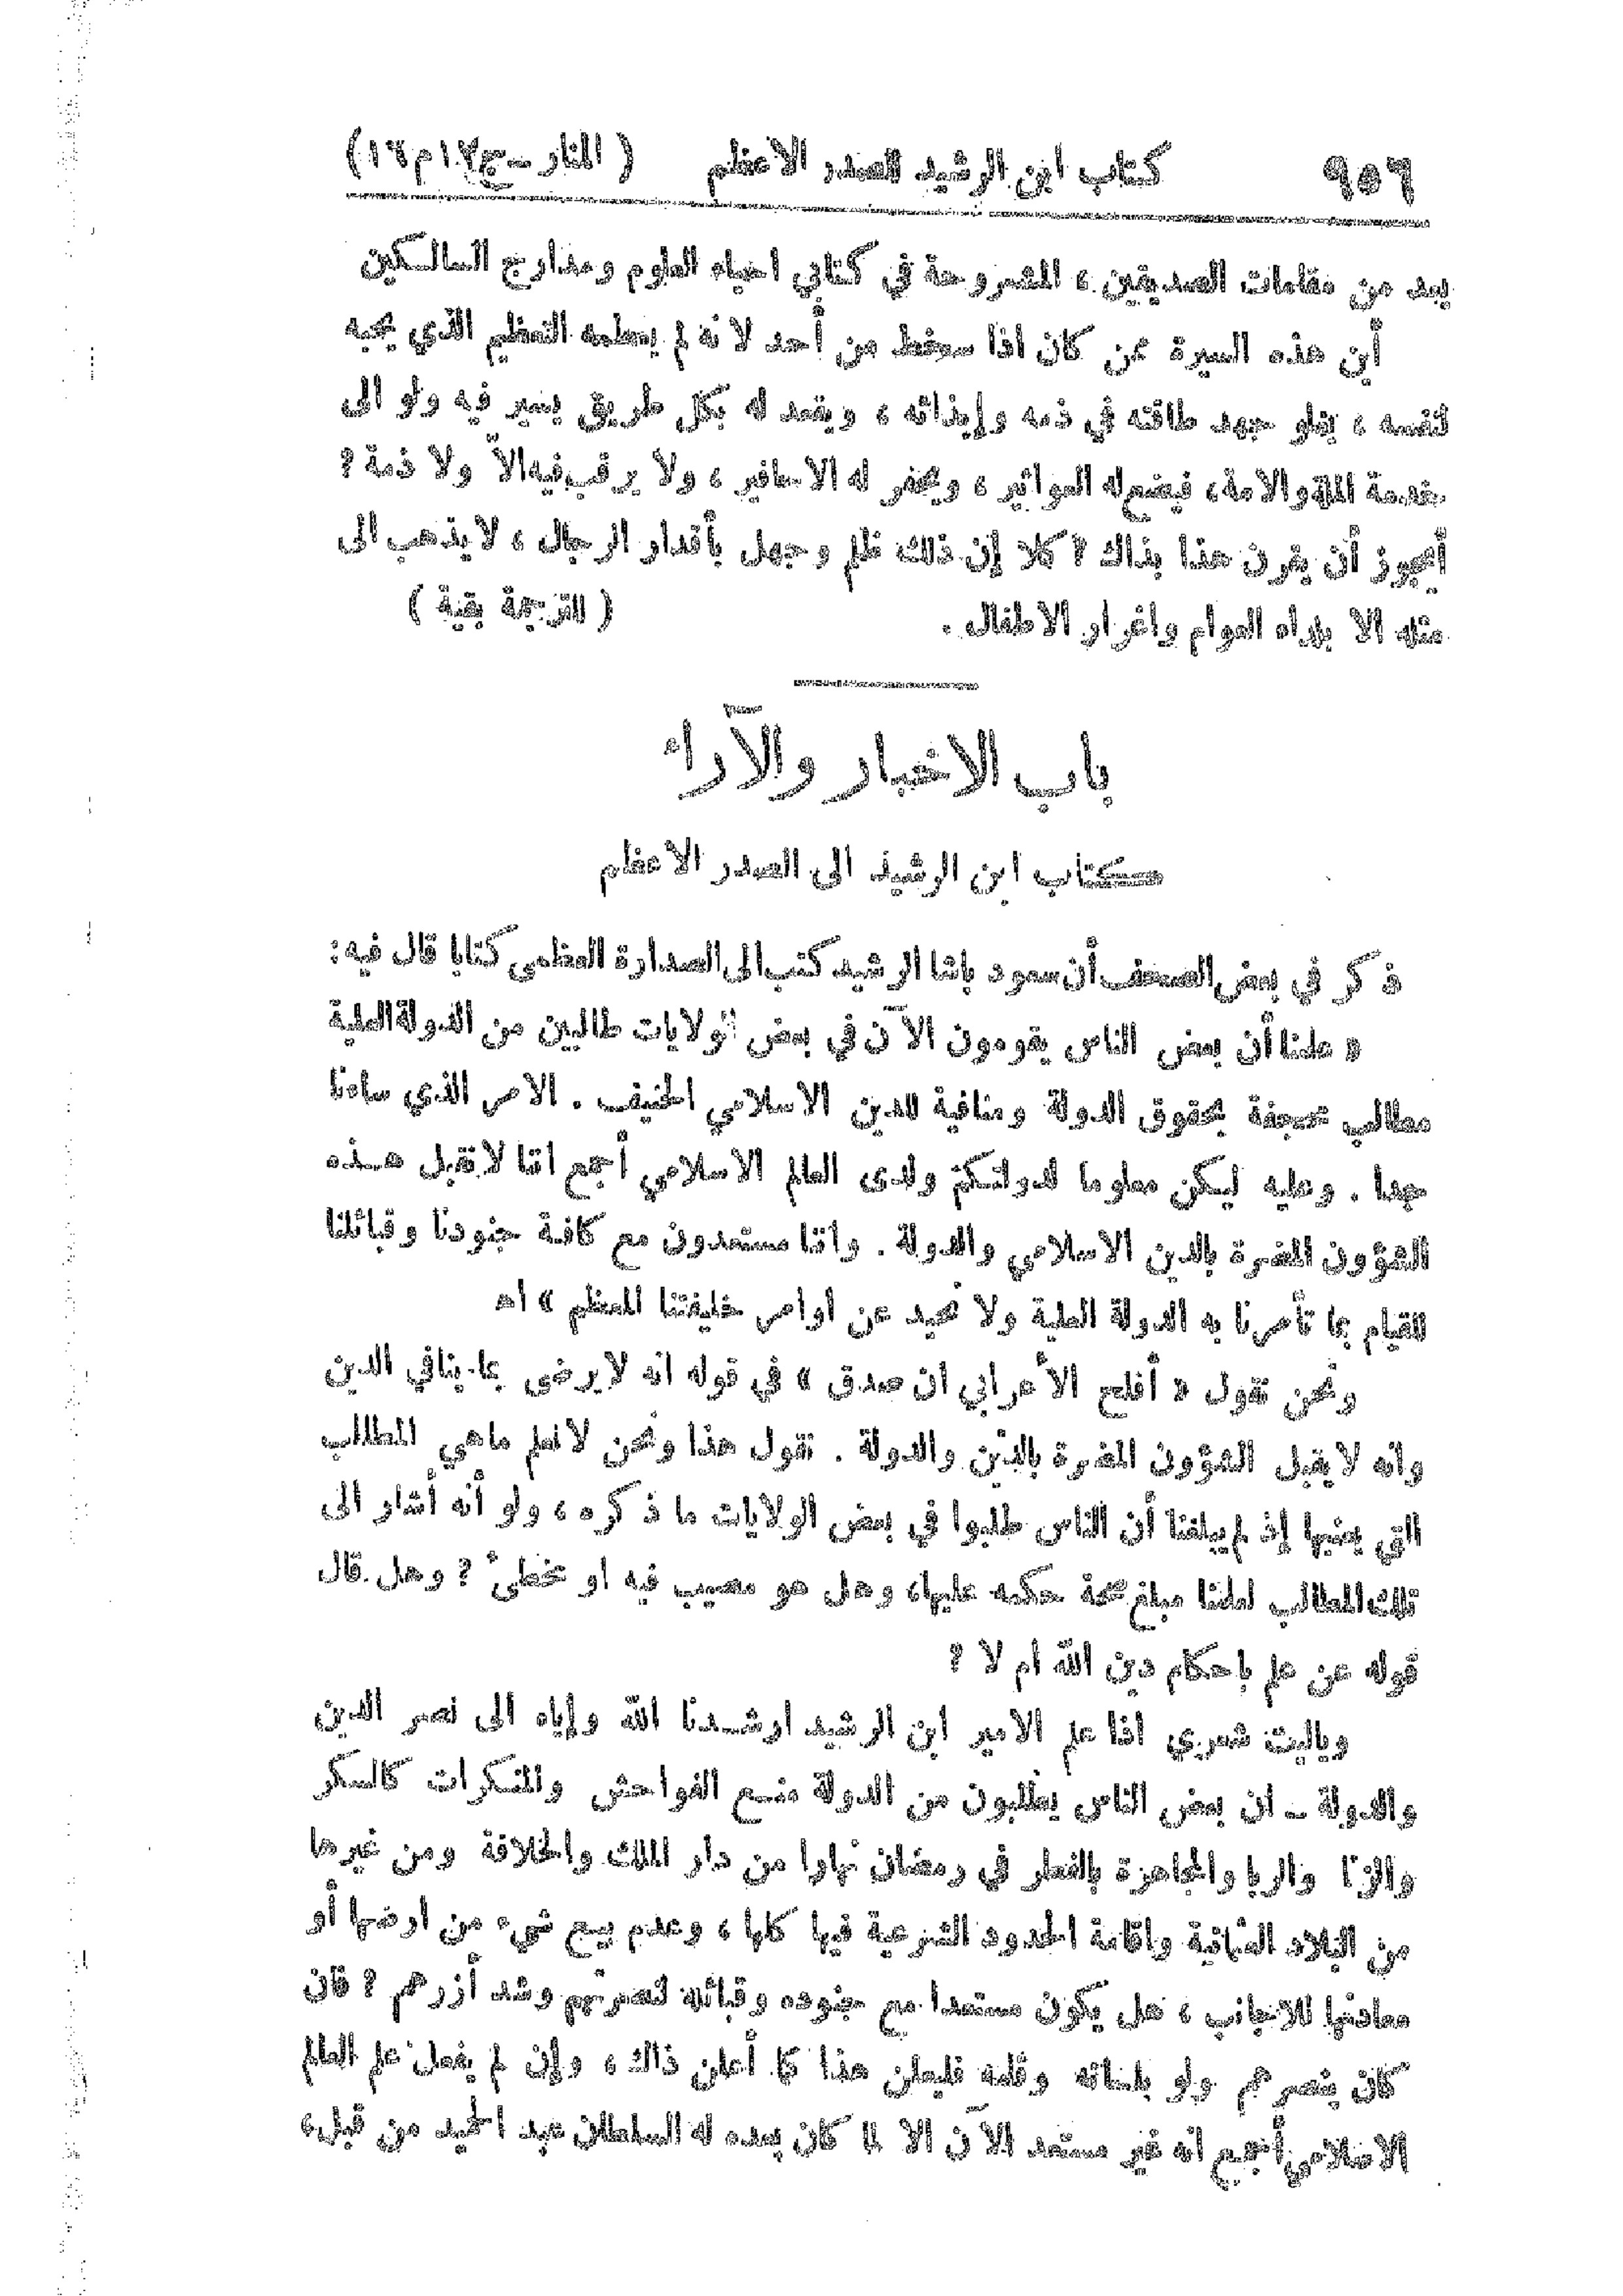 ٩٥٦ كتاب ابن الرشيد للصدر الاعظم ( المنار ـ ج١٢ م١٦ )
يعد من مقامات الصديقين ، المشروحة في كتابي احياء العلوم ومدارج السالكين
أين هذه السيرة ممن كان اذا سخط من أحد لانه لم يعظمه التعظيم الذي يحبه
لنفسه ، يغلو جهد طاقته في ذمه وإيذائه ، ويقعد له بكل طريق يسير فيه ولو الى
خدمة الملة والامة، فيضع له العواثير ، ويحفر له الاحافير ، ولا يرقب فيه الاّ ولا ذمة ؟
أيجوز أن يقرن هذا بذاك ؟ كلا إن ذلك ظلم وجهل بأقدار الرجال ، لا يذهب الى
مثله الا بلداء العوام واغرار الاطفال . ( للترجمة بقية )
باب الاخبار والآراء
كتاب ابن الرشيد الى الصدر الاعظم
ذكر في بعض الصحف أن سعود باشا الرشيد كتب الى الصدارة العظمى كتابا قال فيه:
« علمنا أن بعض الناس يقومون الآن في بعض الولايات طالبين من الدولة العلية
مطالب مجحفة بحقوق الدولة ومنافية للدين الاسلامي الحنيف . الامر الذي ساءنا
جدا . وعليه ليكن معلوما لدولتكم ولدى العالم الاسلامي أجمع اننا لا نقبل هذه
الشؤون المضرة بالدين الاسلامي والدولة . واننا مستعدون مع كافة جنودنا وقبائلنا
للقيام بما تأمرنا به الدولة العلية ولا نحيد عن اوامر خليفتنا المعظم » اه
ونحن نقول « أفلح الأعرابي ان صدق » في قوله انه لا يرضى بما ينافي الدين
وانه لا يقبل الشؤون المضرة بالدين والدولة . نقول هذا ونحن لا نعلم ماهي المطالب
التي يعنيها إذ لم يبلغنا أن الناس طلبوا في بعض الولايات ما ذكره ، ولو أنه أشار الى
تلك المطالب لعلمنا مبلغ صحة حكمه عليها، وهل هو مصيب فيه او مخطئ ؟ وهل قال
قوله عن علم باحكام دين الله ام لا ؟
وياليت شعري اذا علم الامير ابن الرشيد ارشدنا الله وإياه الى نصر الدين
والدولة ـ ان بعض الناس يطلبون من الدولة منع الفواحش والمنكرات كالسكر
والزنا والربا والمجاهرة بالفطر في رمضان نهارا من دار الملك والخلافة ومن غيرها
من البلاد العثمانية واقامة الحدود الشرعية فيها كلها ، وعدم بيع شيء من ارضها أو
معادنها للاجانب ، هل يكون مستعدا مع جنوده وقبائله لنصرتهم وشد أزرهم ؟ فان
كان ينصرهم ولو بلسانه وقلمه فليعلن هذا كما أعلن ذاك ، وإن لم يفعل علم العالم
الاسلامي أجمع انه غير مستعد الآن الا لما كان يعده له السلطان عبد الحميد من قبل،